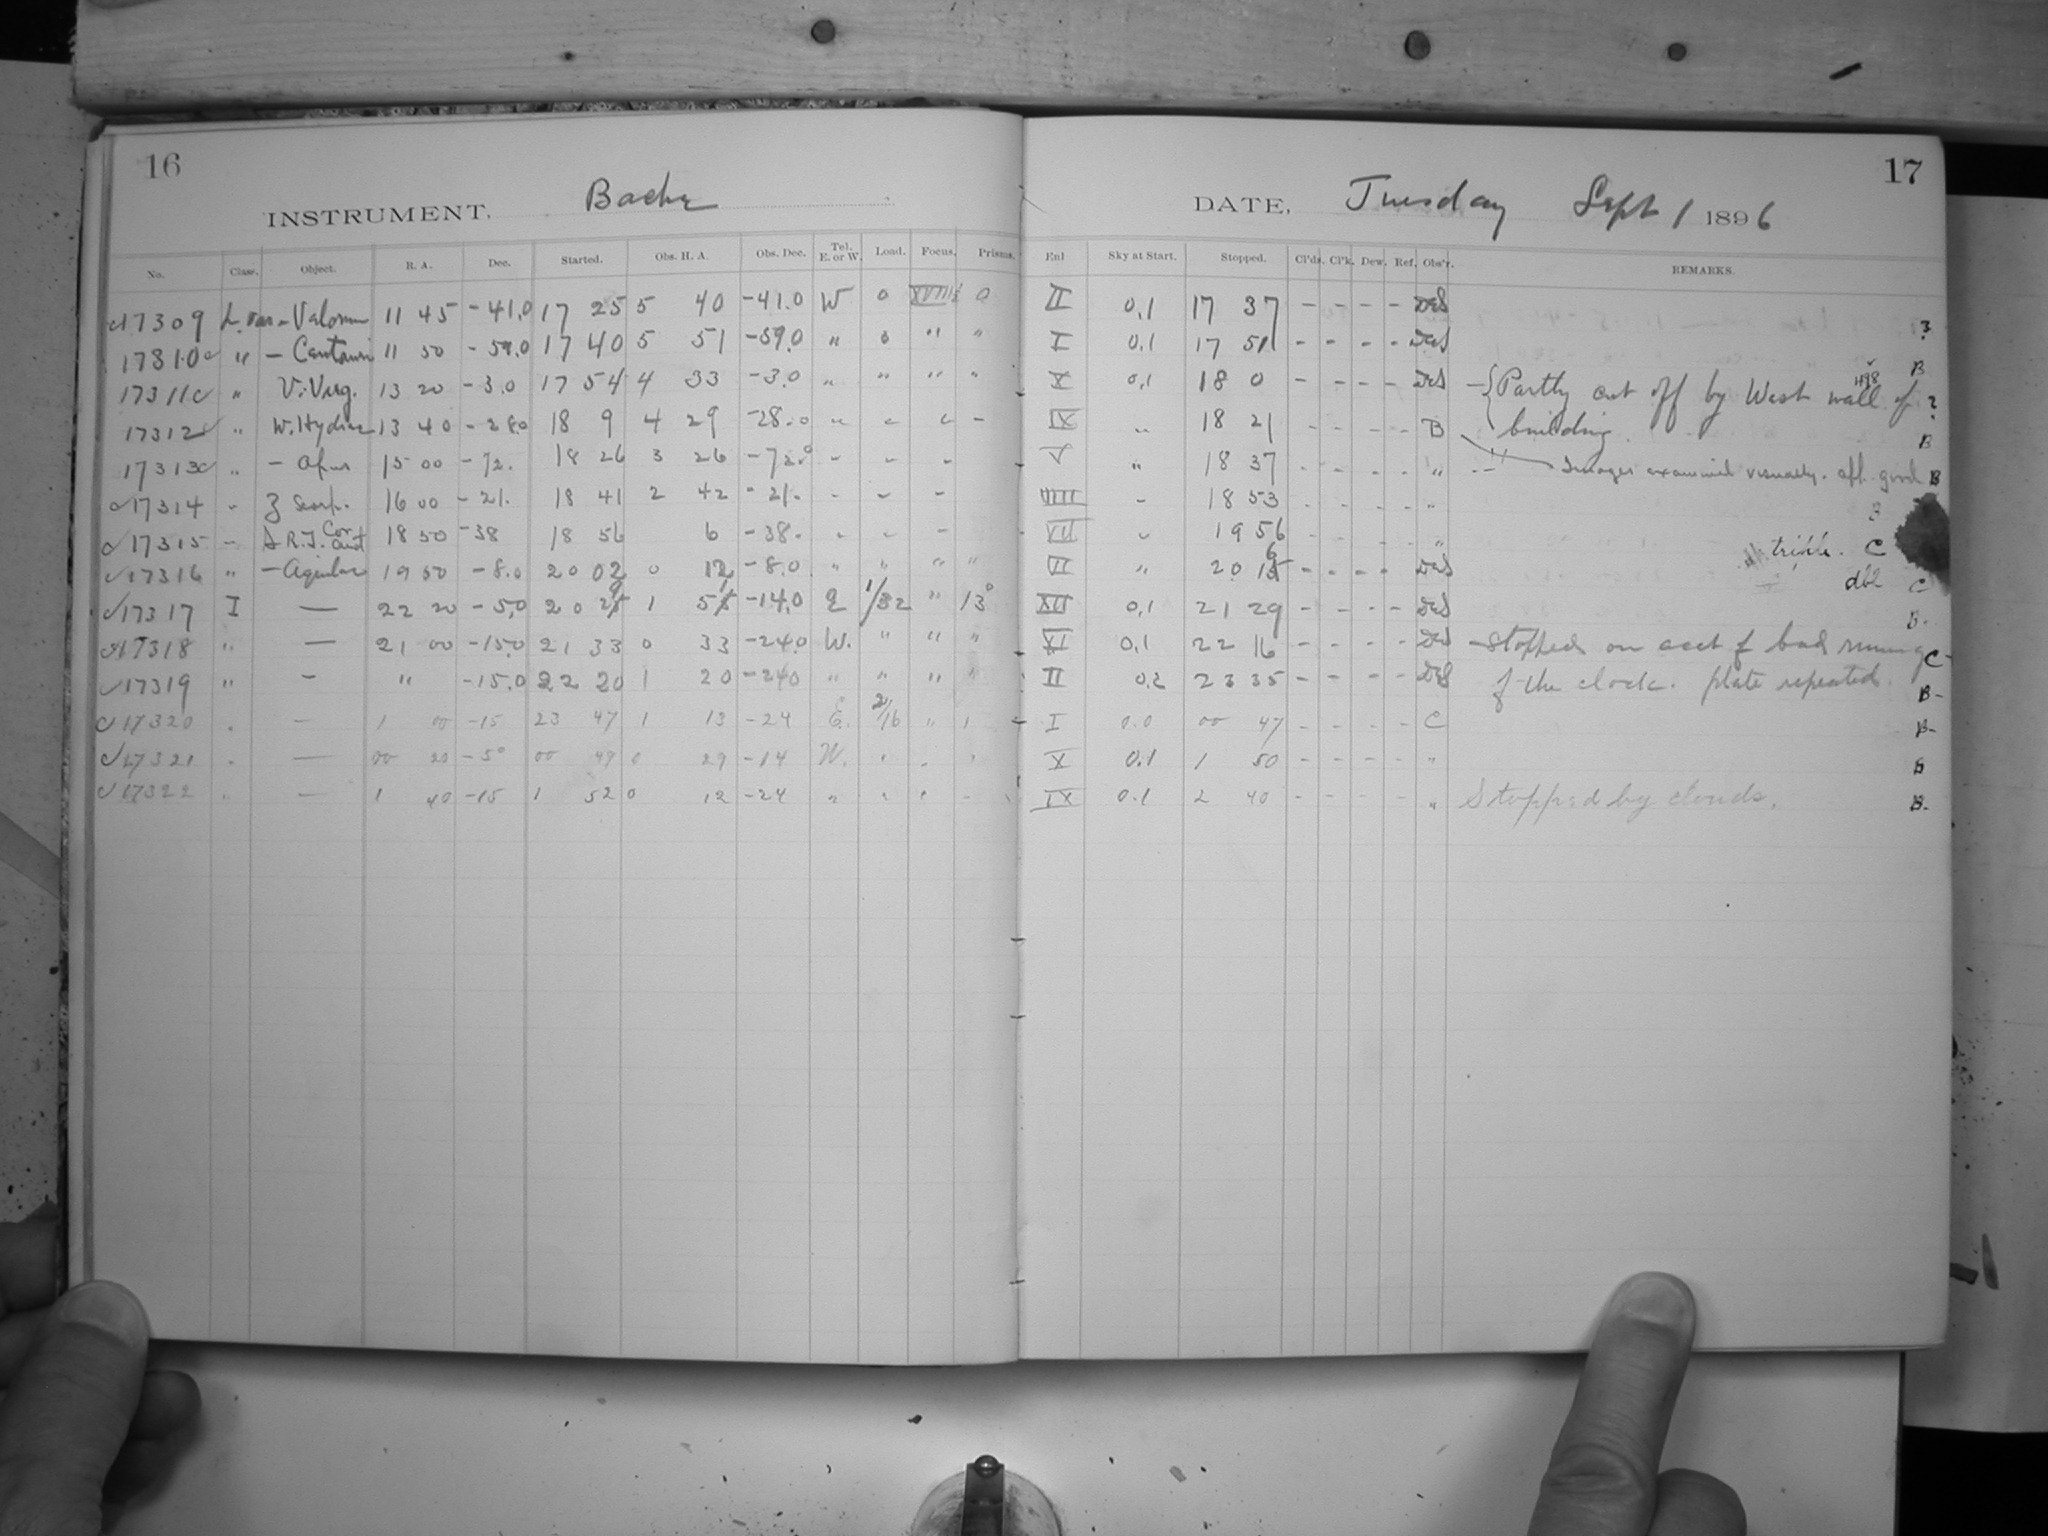 16
17
INSTRUMENT. Bache
DATE, Tuesday Sept 1 1896
No. Class. Object. R. A. Dec. Started. Obs. H. A. Obs. Dec. Tel. E. or W. Load. Focus. Prisms. Enl Sky at Start. Stopped. Cl'ds. Cl'k. Dew. Ref. Obs'r. REMARKS.
17309 L. var - Velorum 11 45 -41.0 17 25 5 40 -41.0 W 0 0 II 0.1 17 37 - - - - DeS ?
17310 " - Centauri 11 50 -59.0 17 40 5 51 -59.0 " 0 " " I 0.1 17 51 - - - - DeS B
17311 " V. Virg. 13 20 -3.0 17 54 4 33 -3.0 " " " " X 0.1 18 0 - - - - DeS - { Partly cut off by West wall of ?
17312 " W. Hydrae 13 40 -28.0 18 9 4 29 -28.0 " " " - IX " 18 21 - - - - B building. B
17313 " - Apus 15 00 -72. 18 26 3 26 -72.0 " - - - V " 18 37 - - - - " -"- Images examined visually. app. good B
17314 " Z Scorp. 16 00 -21. 18 41 2 42 -21. - - - IIIII - 18 53 - - - - " B
17315 - S R.T. Cor. Aust 18 50 -38 18 56 6 -38. - - - VII " 19 56 - - - - " triple. C
17316 " - Aquilae 19 50 -8.0 20 02 0 12 -8.0 " " " " VI " 20 16 - - - - DeS dbl C
17317 I — 22 20 -5.0 20 29 1 51 -14.0 E 1/32 " 13° XII 0.1 21 29 - - - - DeS B-
17318 " — 21 00 -15.0 21 33 0 33 -24.0 W. " " " XI 0.1 22 16 - - - - DeS - Stopped on acct of bad running C-
17319 " - " -15.0 22 20 1 20 -24.0 " " " " II 0.2 23 35 - - - - DeS of the clock. plate repeated. B-
17320 . - 1 00 -15 23 47 1 13 -24 E. 2/16 " " I 0.0 00 47 - - - - C B-
17321 . — 00 20 -5° 00 49 0 29 -14 W. " . " X 0.1 1 50 - - - - " B
17322 . — 1 40 -15 1 52 0 12 -24 " " " - IX 0.1 2 40 - - - - " Stopped by clouds. B-